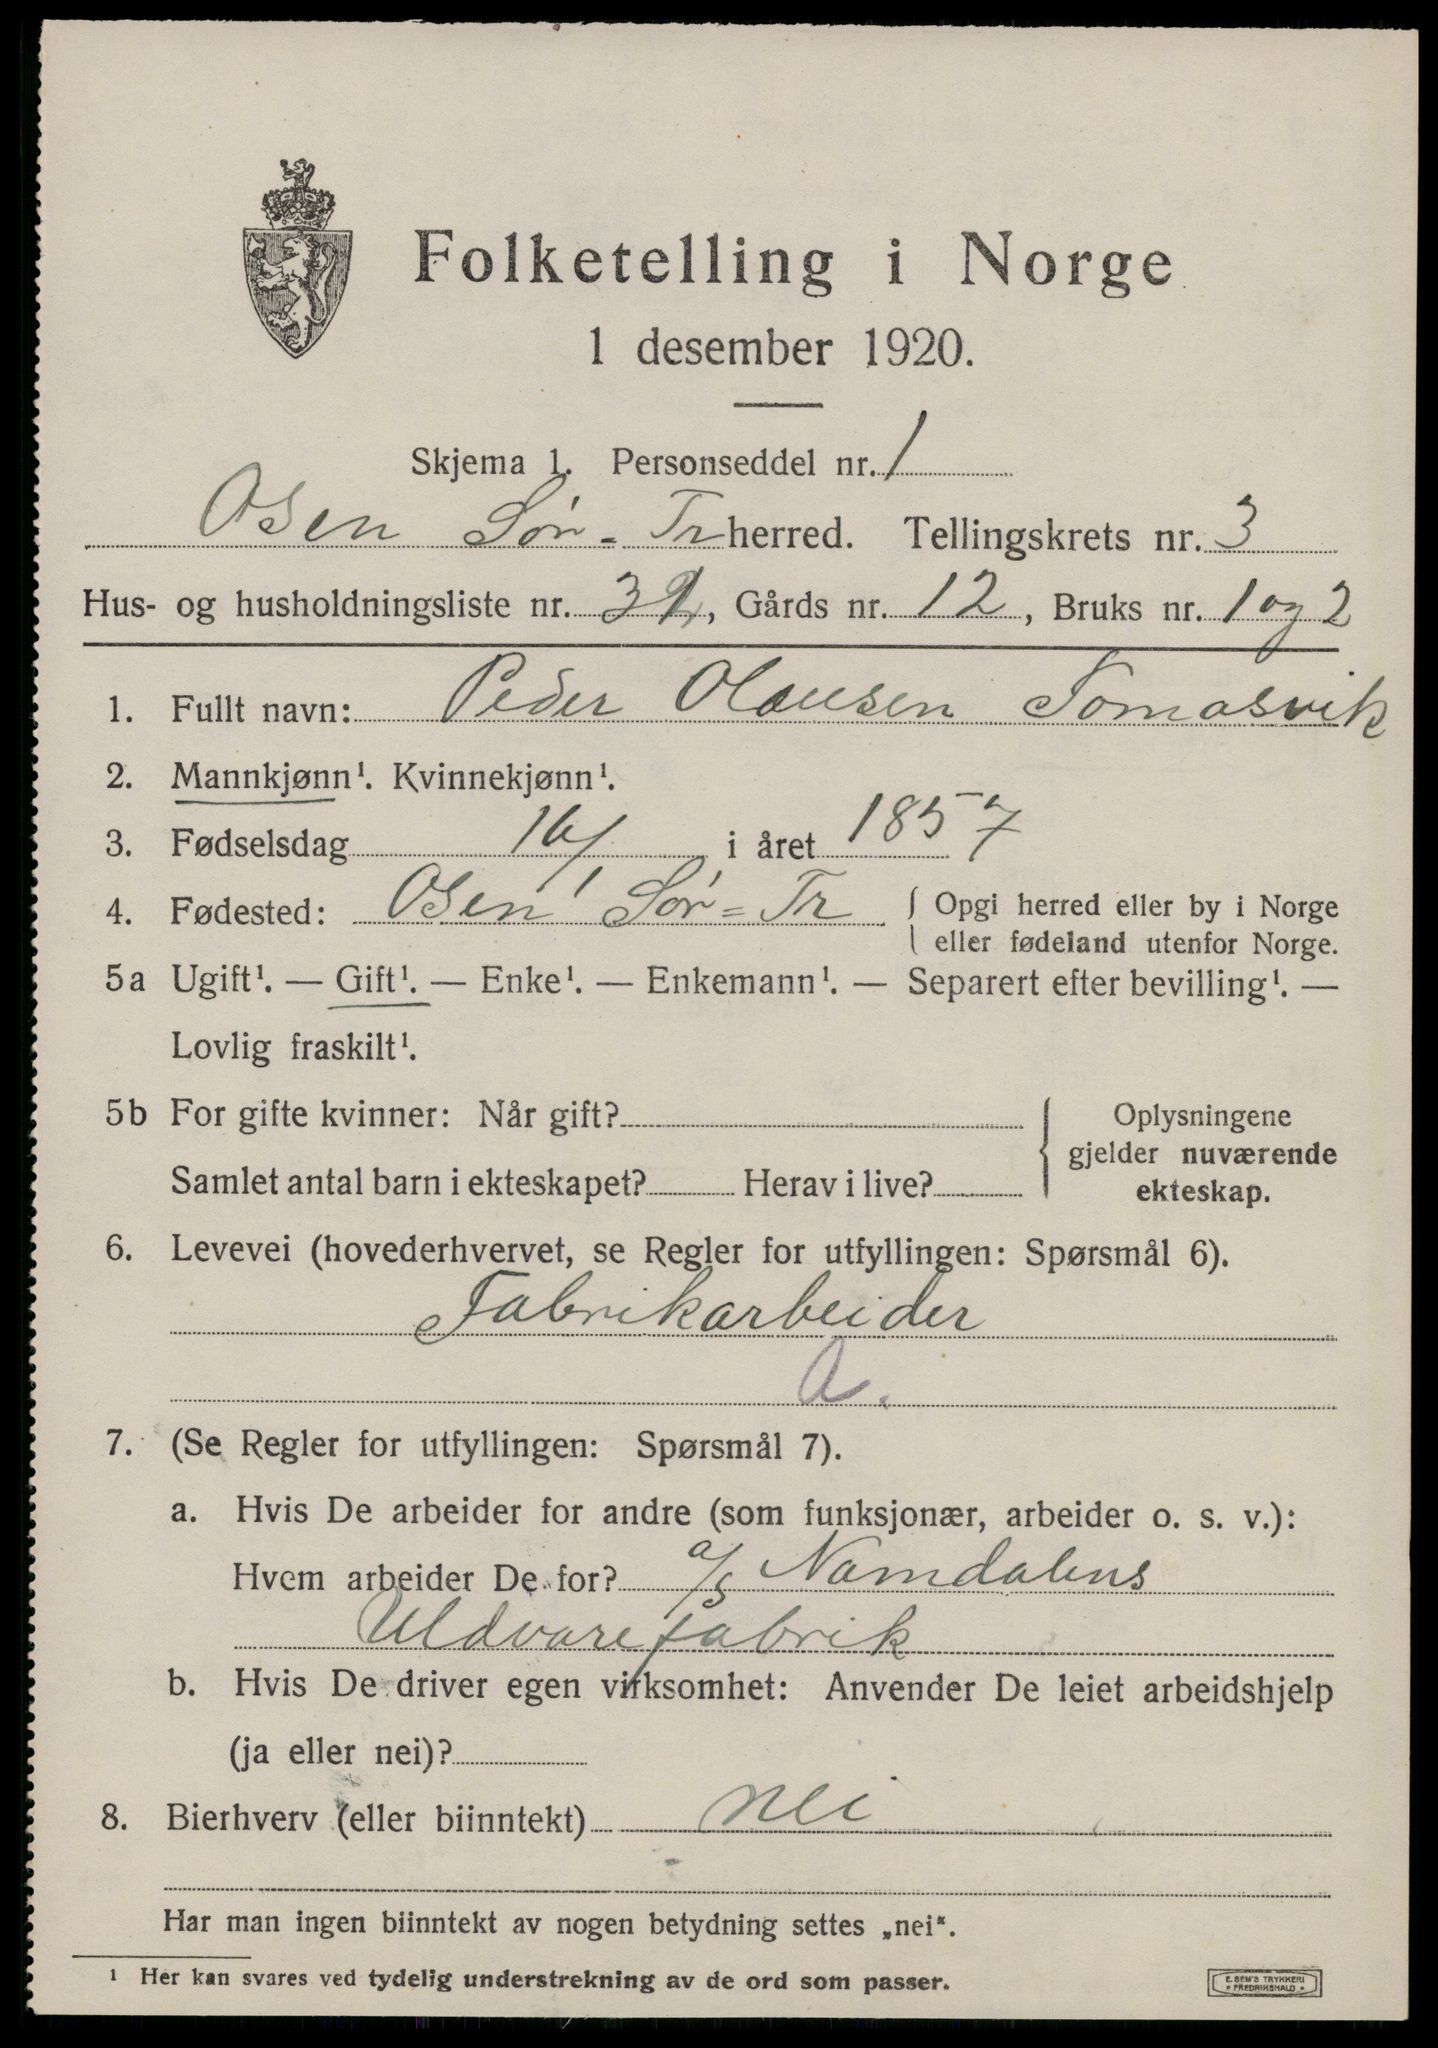 Folketelling i Norge
1 desember 1920.
Skjema 1. Personseddel nr. 1
Osen Sør-Tr herred. Tellingskrets nr. 3
Hus- og husholdningsliste nr. 32, Gårds nr. 12, Bruks nr. 1 og 2
1. Fullt navn: Peder Olausen Tomasvik
2. Mannkjønn¹. Kvinnekjønn¹.
3. Fødselsdag 16/1 i året 1857
4. Fødested: Osen Sør=Tr { Opgi herred eller by i Norge
eller fødeland utenfor Norge.
5a Ugift¹. — Gift¹. — Enke¹. — Enkemann¹. — Separert efter bevilling¹. —
Lovlig fraskilt¹.
5b For gifte kvinner: Når gift?
Samlet antal barn i ekteskapet? Herav i live?
Oplysningene
gjelder nuværende
ekteskap.
6. Levevei (hovederhvervet, se Regler for utfyllingen: Spørsmål 6).
Fabrikarbeider
A.
7. (Se Regler for utfyllingen: Spørsmål 7).
a. Hvis De arbeider for andre (som funksjonær, arbeider o. s. v.):
Hvem arbeider De for? a/s Namdalens
Uldvarefabrik
b. Hvis De driver egen virksomhet: Anvender De leiet arbeidshjelp
(ja eller nei)?
8. Bierhverv (eller biinntekt) nei
Har man ingen biinntekt av nogen betydning settes „nei“.
¹ Her kan svares ved tydelig understrekning av de ord som passer.
E. SEM'S TRYKKERI
• FREDRIKSHALD •